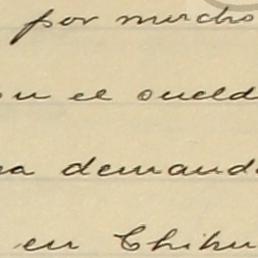 por mucho
en el sueld
a demand
en Chihu